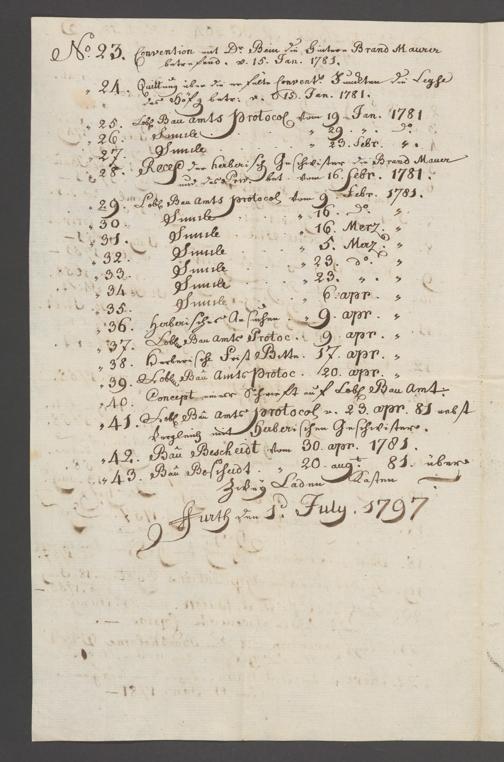 No 23. Convention mit Dr. Bein die hintere Brand Maurer
betrefend. v. 15. Jan. 1781.
" 24. Quittung über die Convent. Puncten die
betr. v. 15. Jan. 1781.
" 25. Lobl. Bau amts Protocol vom 19. Jan. 1781
" 26. Simile " 29. " do.
" 27. Simile " 23. Febr. "
" 28. Recess der herberisch Geschwister die Brand Mauer
und betr. vom 16. Febr. 1781.
" 29. Lobl. Bau Amts Protocol vom 9. Febr. 1781.
" 30. Simile " 16. do. "
" 31. Simile " 16. Merz. "
" 32. Simile " 5. Merz. "
" 33. Simile " 23. do. "
" 34. Simile " 23. " "
" 35. Simile " 6. apr. "
" 36. herberisches Ansuchen " 9. apr. "
" 37. Lobl. Bau Amts Protoc. " 9. apr. "
" 38. Herberische 17. apr. "
" 39. Lobl. Bau Amts Protoc. 20. apr. "
" 40. Concept einer Schrift auf Lobl. Bau Amt.
" 41. Lobl. Bau Amts Protocol v. 23. apr. 81 nebst
Vergleich mit herberischen Geschwister.
" 42. Bau Bescheidt vom 30. apr. 1781.
" 43. Bau Bescheidt. " 20. augt. 81. über
Zwey Laden Kasten
Furth den 1. July. 1797